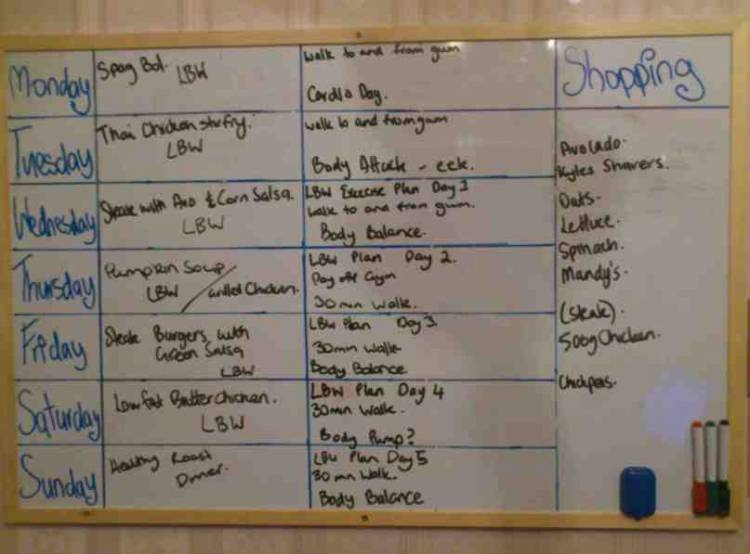 Monday
Spag Bol.
LBW
walk to and from gym
Cardio Day.
Tuesday
Thai Chicken stirfry.
LBW
walk to and from gym
Body Attack - eek.
Wednesday
Steak with Avo & Corn Salsa.
LBW
LBW Exercise Plan Day 1
walk to and from gym.
Body Balance.
Thursday
Pumpkin Soup
LBW / Grilled Chicken.
LBW Plan Day 2.
Day off Gym
30min Walk.
Friday
Steak Burgers with
Green Salsa
LBW
LBW Plan Day 3
30min Walk
Body Balance
Saturday
Low fat Butter Chicken.
LBW
LBW Plan Day 4
30min Walk.
Body Pump?
Sunday
Healthy Roast
Dinner.
LBW Plan Day 5
30 min Walk.
Body Balance
Shopping
Avocado.
Kyles Shavers.
Oats.
Lettuce.
Spinach.
Mandy's.
(steak).
500g Chicken.
Chickpeas.